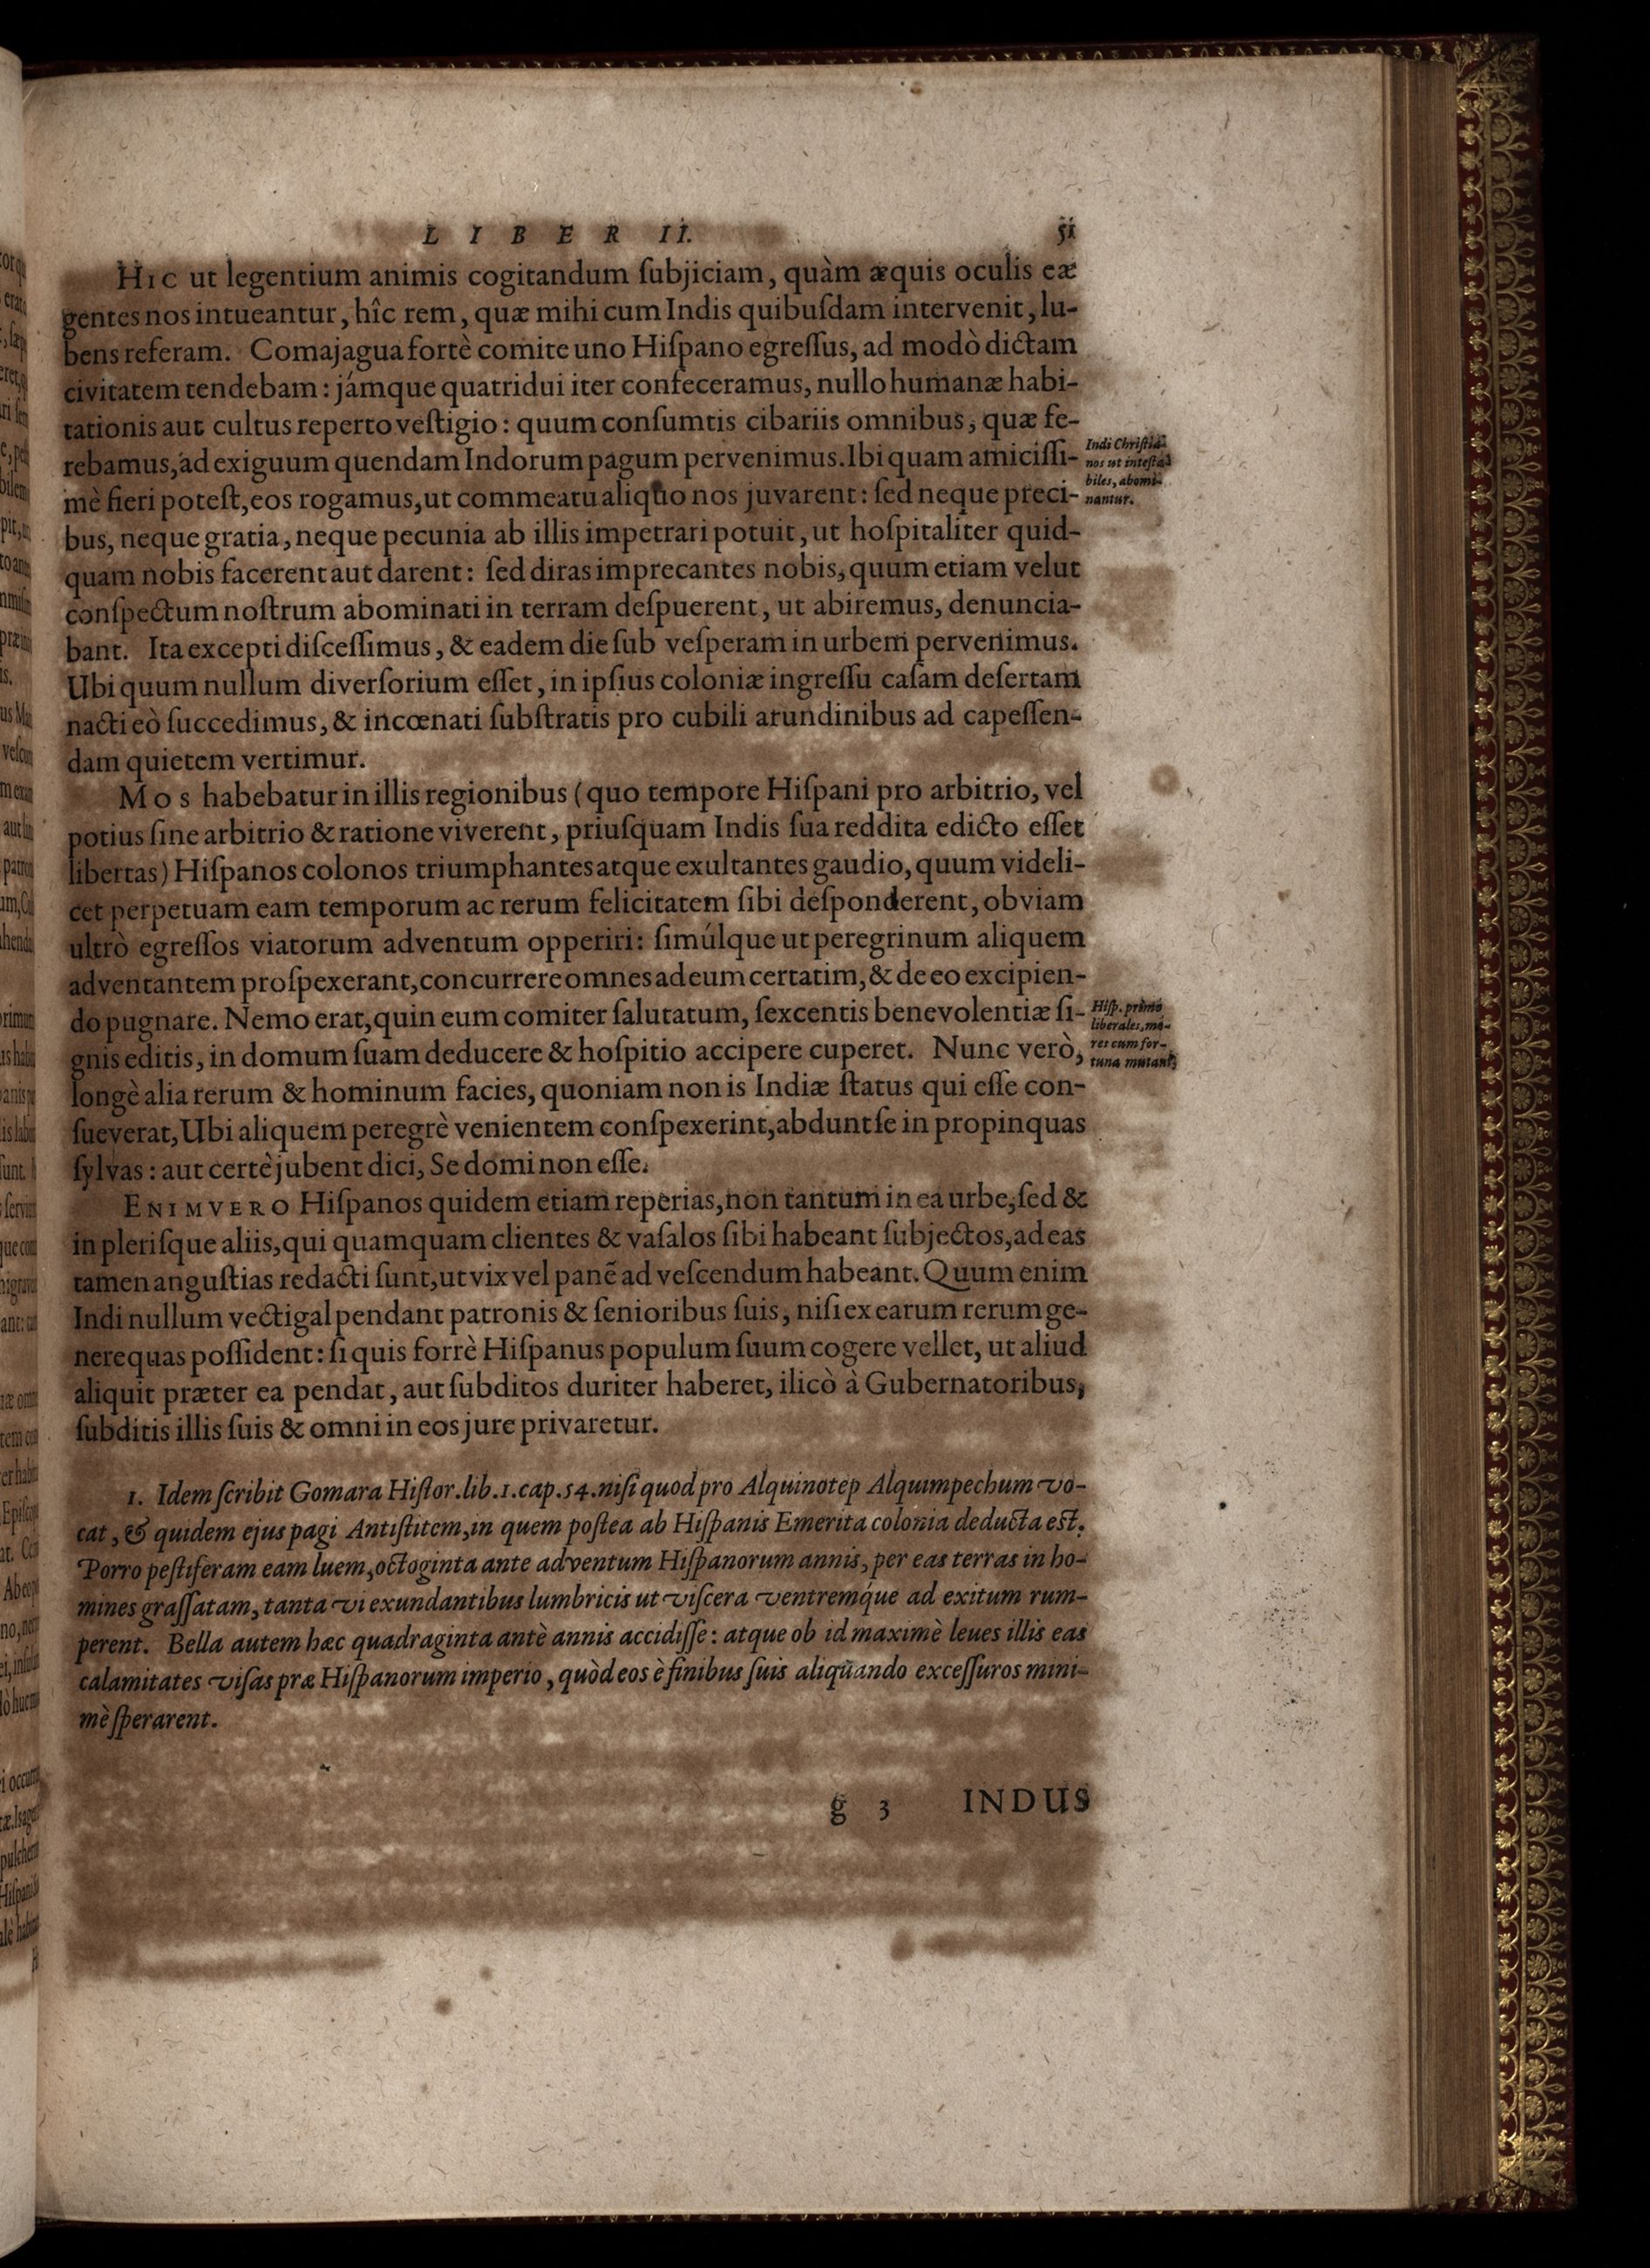 LIBER II. 51
HIC ut legentium animis cogitandum ſubjiciam, quàm æquis oculis eæ
gentes nos intueantur, hîc rem, quæ mihi cum Indis quibuſdam intervenit, lu-
bens referam. Comajagua fortè comite uno Hiſpano egreſſus, ad modò dictam
civitatem tendebam: jámque quatridui iter confeceramus, nullo humanæ habi-
tationis aut cultus reperto veſtigio: quum conſumtis cibariis omnibus, quæ fe-
rebamus, ad exiguum quendam Indorum pagum pervenimus. Ibi quam amiciſſi-
mè fieri poteſt, eos rogamus, ut commeatu aliquo nos juvarent: ſed neque preci-
bus, neque gratia, neque pecunia ab illis impetrari potuit, ut hoſpitaliter quid-
quam nobis facerent aut darent: ſed diras imprecantes nobis, quum etiam velut
conſpectum noſtrum abominati in terram deſpuerent, ut abiremus, denuncia-
bant. Ita excepti diſceſſimus, & eadem die ſub veſperam in urbem pervenimus.
Ubi quum nullum diverſorium eſſet, in ipſius coloniæ ingreſſu caſam deſertam
nacti eò ſuccedimus, & incœnati ſubſtratis pro cubili arundinibus ad capeſſen-
dam quietem vertimur.
Indi Chriſtia-
nos ut inteſta-
biles, abomi-
nantur.
Mos habebatur in illis regionibus (quo tempore Hiſpani pro arbitrio, vel
potius ſine arbitrio & ratione viverent, priuſquam Indis ſua reddita edicto eſſet
libertas) Hiſpanos colonos triumphantes atque exultantes gaudio, quum videli-
cet perpetuam eam temporum ac rerum felicitatem ſibi deſponderent, obviam
ultrò egreſſos viatorum adventum opperiri: ſimúlque ut peregrinum aliquem
adventantem proſpexerant, concurrere omnes ad eum certatim, & de eo excipien-
do pugnare. Nemo erat, quin eum comiter ſalutatum, ſexcentis benevolentiæ ſi-
gnis editis, in domum ſuam deducere & hoſpitio accipere cuperet. Nunc verò,
longè alia rerum & hominum facies, quoniam non is Indiæ ſtatus qui eſſe con-
ſueverat, Ubi aliquem peregrè venientem conſpexerint, abdunt ſe in propinquas
ſylvas: aut certè jubent dici, Se domi non eſſe.
Hiſp. primò
liberales, mo-
res cum for-
tuna mutant.
ENIMVERO Hiſpanos quidem etiam reperias, non tantum in ea urbe, ſed &
in pleriſque aliis, qui quamquam clientes & vaſalos ſibi habeant ſubjectos, ad eas
tamen anguſtias redacti ſunt, ut vix vel panẽ ad veſcendum habeant. Quum enim
Indi nullum vectigal pendant patronis & ſenioribus ſuis, niſi ex earum rerum ge-
nere quas poſſident: ſi quis forrè Hiſpanus populum ſuum cogere vellet, ut aliud
aliquit præter ea pendat, aut ſubditos duriter haberet, ilicò à Gubernatoribus,
ſubditis illis ſuis & omni in eos jure privaretur.
1. Idem ſcribit Gomara Hiſtor. lib. 1. cap. 54. niſi quod pro Alquinotep Alquimpechum vo-
cat, & quidem ejus pagi Antiſtitem, in quem poſtea ab Hiſpanis Emerita colonia deducta eſt.
Porro peſtiferam eam luem, octoginta ante adventum Hiſpanorum annis, per eas terras in ho-
mines graſſatam, tanta vi exundantibus lumbricis ut viſcera ventremq́ue ad exitum rum-
perent. Bella autem hæc quadraginta antè annis accidiſſe: atque ob id maximè leues illis eas
calamitates viſas præ Hiſpanorum imperio, quòd eos è finibus ſuis aliquando exceſſuros mini-
mè ſperarent.
g 3 INDUS